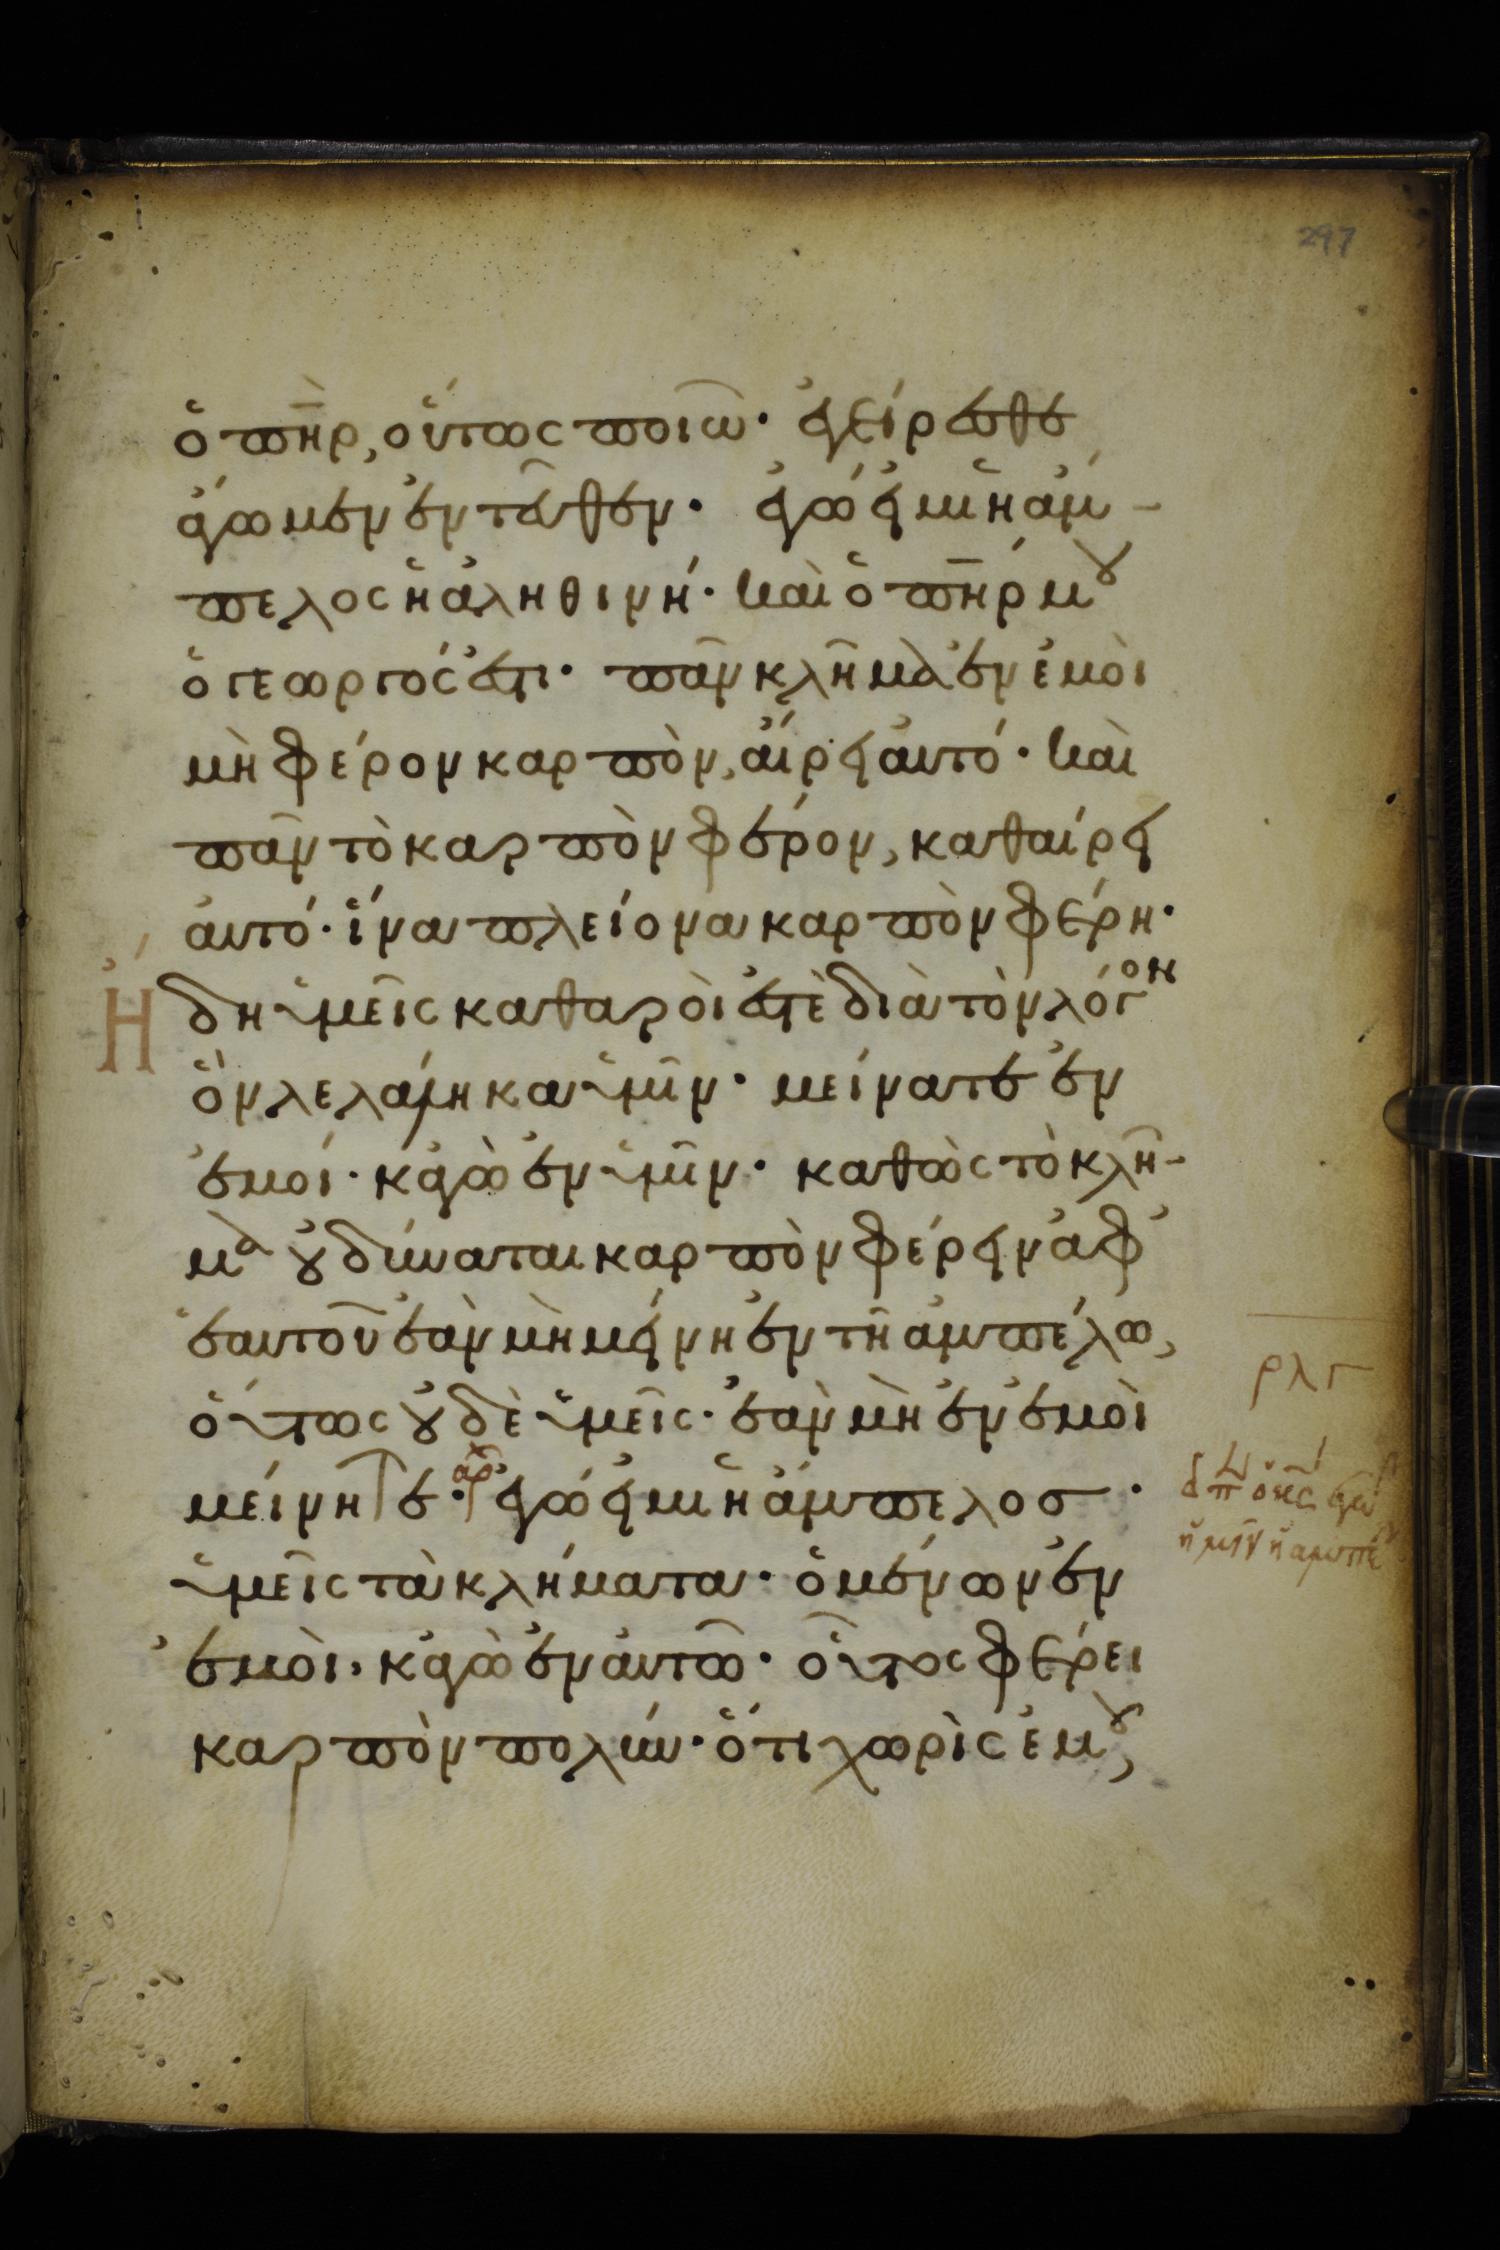 297
ὁ πη̅ρ, οὕτως ποιῶ· ἐγείρεσθε
ἄγωμεν ἐντεῦθεν· ἐγώ εἰμι ἡ ἄμ-
πελος ἡ ἀληθινή· καὶ ὁ πη̅ρ μου
ὁ γεωργός ἐστι· πᾶν κλῆμα ἐν ἐμοὶ
μὴ φέρον καρπὸν, αἴρει αὐτό· καὶ
πᾶν τὸ καρπὸν φέρον, καθαίρει
αὐτό· ἵνα πλείονα καρπὸν φέρη·
Ἤδη ὑμεῖς καθαροί ἐστὲ διὰ τὸν λόγον
ὃν λελάληκα ὑμῖν· μείνατε ἐν
ἐμοί· κἀγὼ ἐν ὑμῖν· καθὼς τὸ κλῆ-
μα οὐ δύναται καρπὸν φέρειν ἀφ'
ἑαυτοῦ ἐὰν μὴ μείνη ἐν τῆ ἀμπέλω,
οὕτως οὐδὲ ὑμεῖς· ἐὰν μὴ ἐν ἐμοὶ
ρλγ
μείνητε· ἀρχ ἐγώ εἰμι ἡ ἄμπελος·
ὑμεῖς τὰ κλήματα· ὁ μένων ἐν
ἐμοὶ· κἀγὼ ἐν αὐτῶ· οὗτος φέρει
καρπὸν πολύν· ὅτι χωρὶς ἐμοῦ,